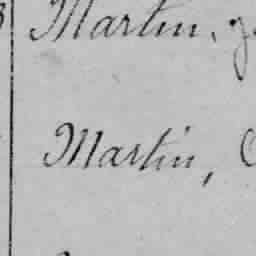 Martin,
Martin,